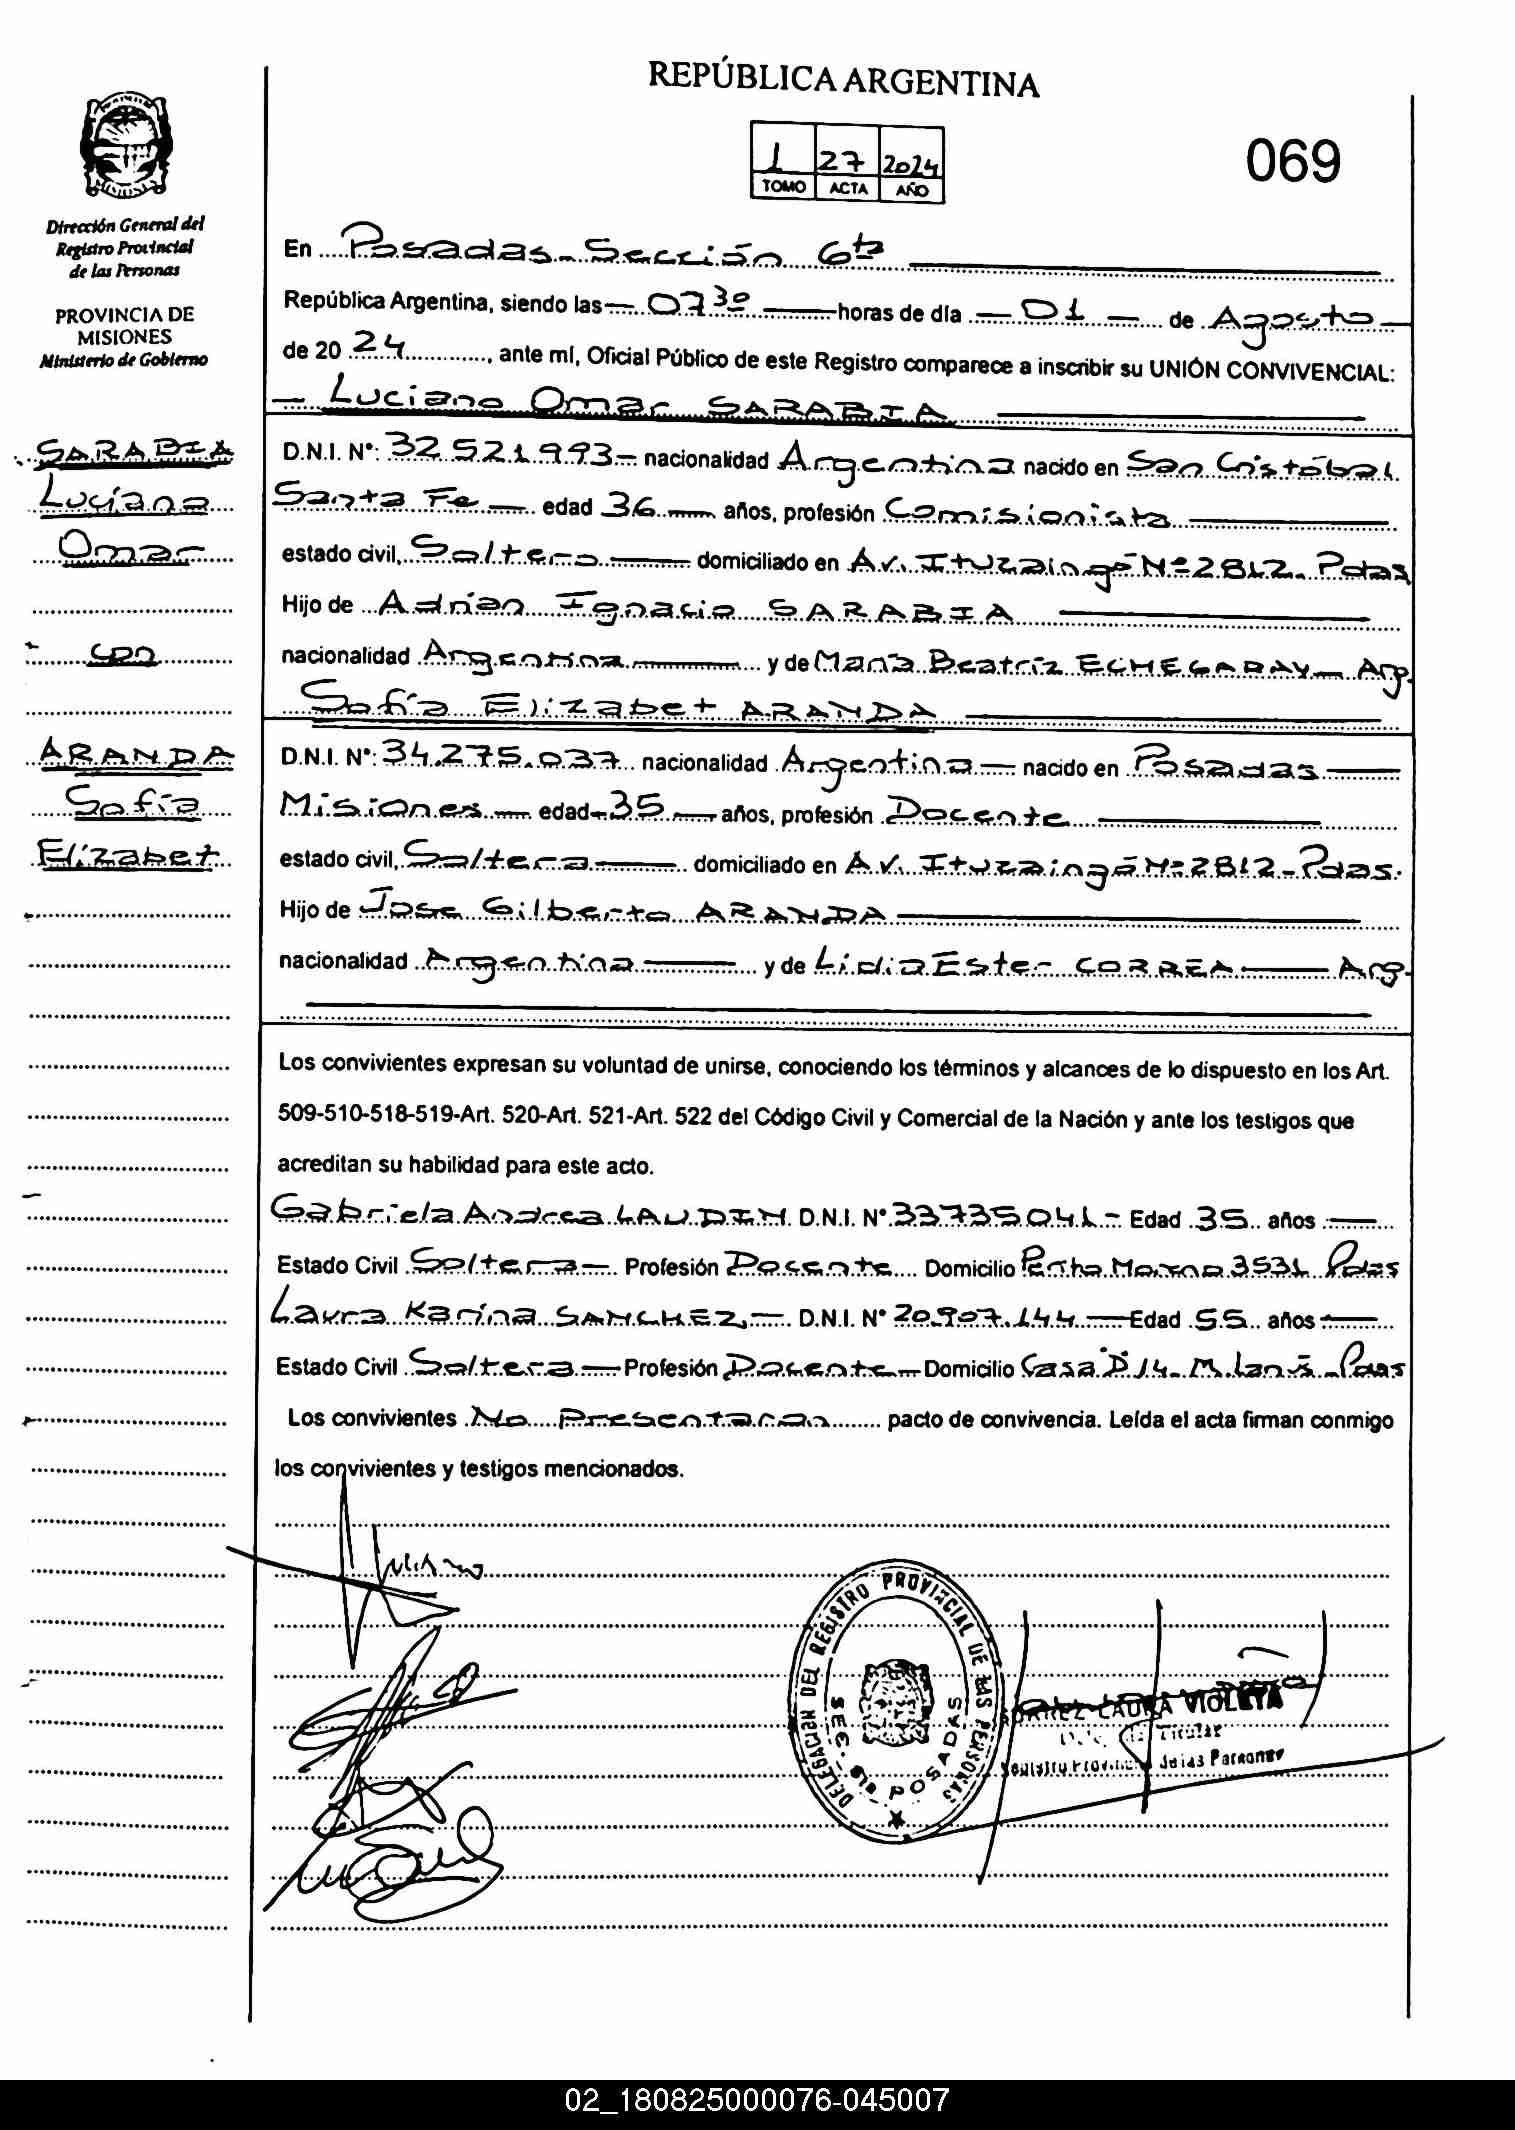 REPÚBLICA ARGENTINA
1 27 2024
TOMO ACTA AÑO
069
Dirección General del
Registro Provincial
de las Personas
PROVINCIA DE
MISIONES
Ministerio de Gobierno
En Posadas - Sección 6ta
República Argentina, siendo las 07 30 horas de día 01 de Agosto
de 20 24, ante mí, Oficial Público de este Registro comparece a inscribir su UNIÓN CONVIVENCIAL:
Luciano Omar SARABIA
SARABIA
Luciano
Omar
con
ARANDA
Sofía
Elizabet
D.N.I. Nº: 32 521 993 - nacionalidad Argentina nacido en San Cristóbal
Santa Fe edad 36 años, profesión Comisionista
estado civil, Soltero domiciliado en Av. Ituzaingó Nº 2812 - Pdas
Hijo de Adrián Ignacio SARABIA
nacionalidad Argentina y de María Beatriz ECHEGARAY - Arg.
Sofía Elizabet ARANDA
D.N.I. Nº: 34.275.037 nacionalidad Argentina nacido en Posadas
Misiones edad 35 años, profesión Docente
estado civil, Soltera domiciliado en Av. Ituzaingó Nº 2812 - Pdas.
Hijo de Jose Gilberto ARANDA
nacionalidad Argentina y de Lidia Ester CORREA Arg.
Los convivientes expresan su voluntad de unirse, conociendo los términos y alcances de lo dispuesto en los Art.
509-510-518-519-Art. 520-Art. 521-Art. 522 del Código Civil y Comercial de la Nación y ante los testigos que
acreditan su habilidad para este acto.
Gabriela Andrea LAUDIN D.N.I. Nº 33735041 - Edad 35 años
Estado Civil Soltera - Profesión Docente Domicilio Perito Moreno 3531 Pdas
Laura Karina SANCHEZ, - D.N.I. Nº 20.907.144 - Edad 55 años
Estado Civil Soltera - Profesión Docente - Domicilio Casa D 14 - M. Lanús - Pdas
Los convivientes No Presentaron pacto de convivencia. Leída el acta firman conmigo
los convivientes y testigos mencionados.
DELEGACION DEL REGISTRO PROVINCIAL DE LAS PERSONAS
SEC. 6ta POSADAS
LAURA VIOLETA
Titular
Registro Provincial de las Personas
02_180825000076-045007